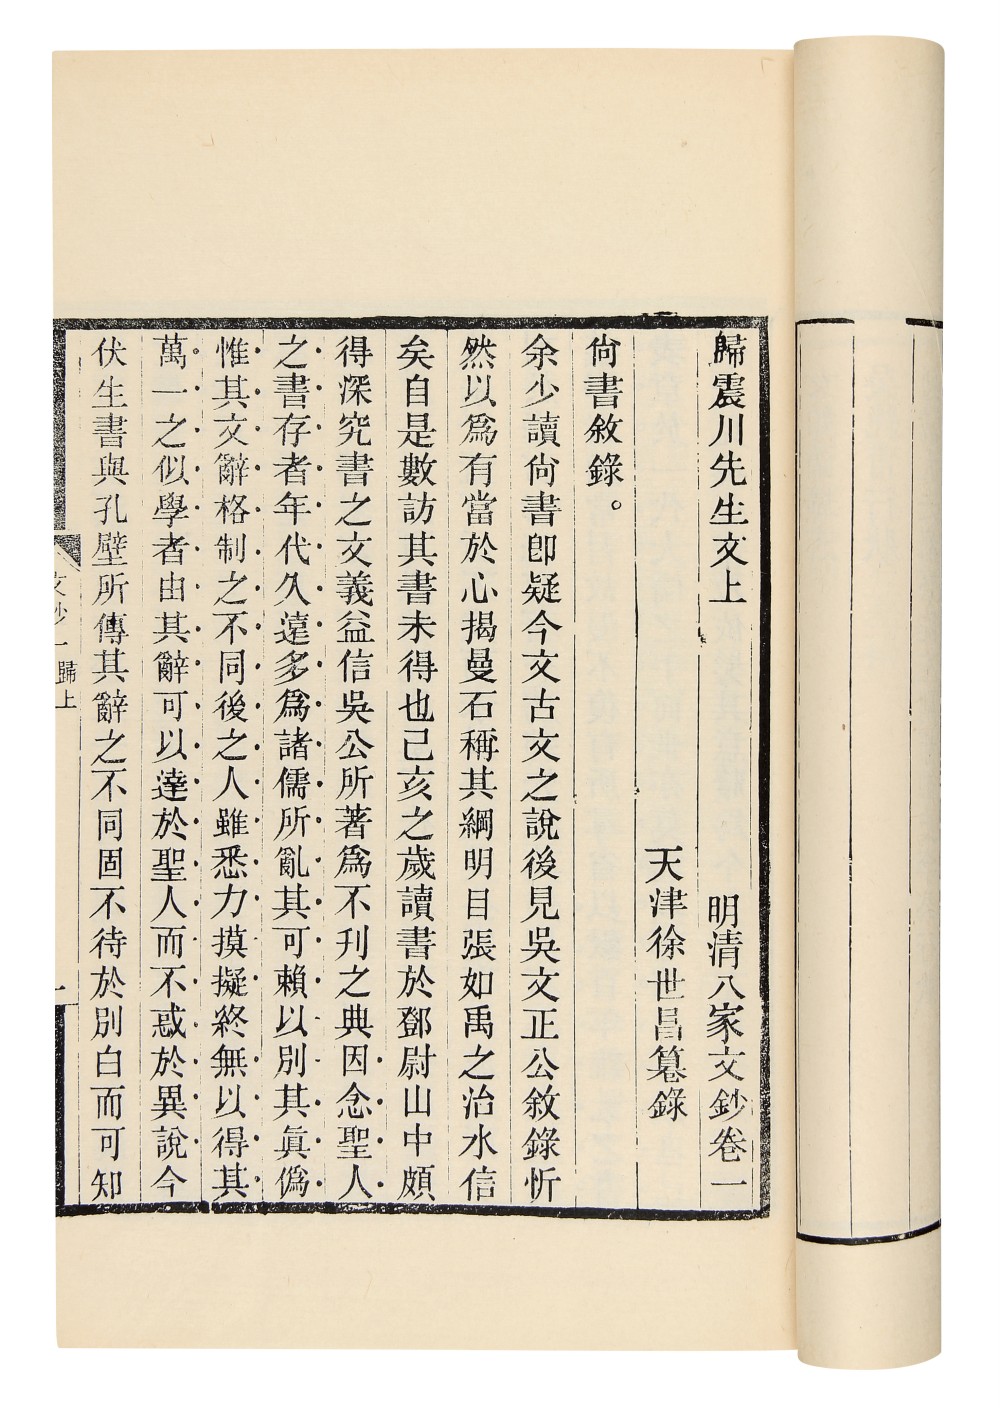 歸震川先生文上 明清八家文鈔卷一
天津徐世昌纂錄
尙書敘錄。
余少讀尙書卽疑今文古文之說後見吳文正公敘錄忻
然以爲有當於心揭曼石稱其綱明目張如禹之治水信
矣自是數訪其書未得也己亥之歲讀書於鄧尉山中頗
得深究書之文義益信吳公所著爲不刋之典因念聖人
之書存者年代久遠多爲諸儒所亂其可賴以別其眞僞
惟其文辭格制之不同後之人雖悉力摸擬終無以得其
萬一之似學者由其辭可以達於聖人而不惑於異說今
伏生書與孔壁所傳其辭之不同固不待於別白而可知
文鈔一 歸上 一